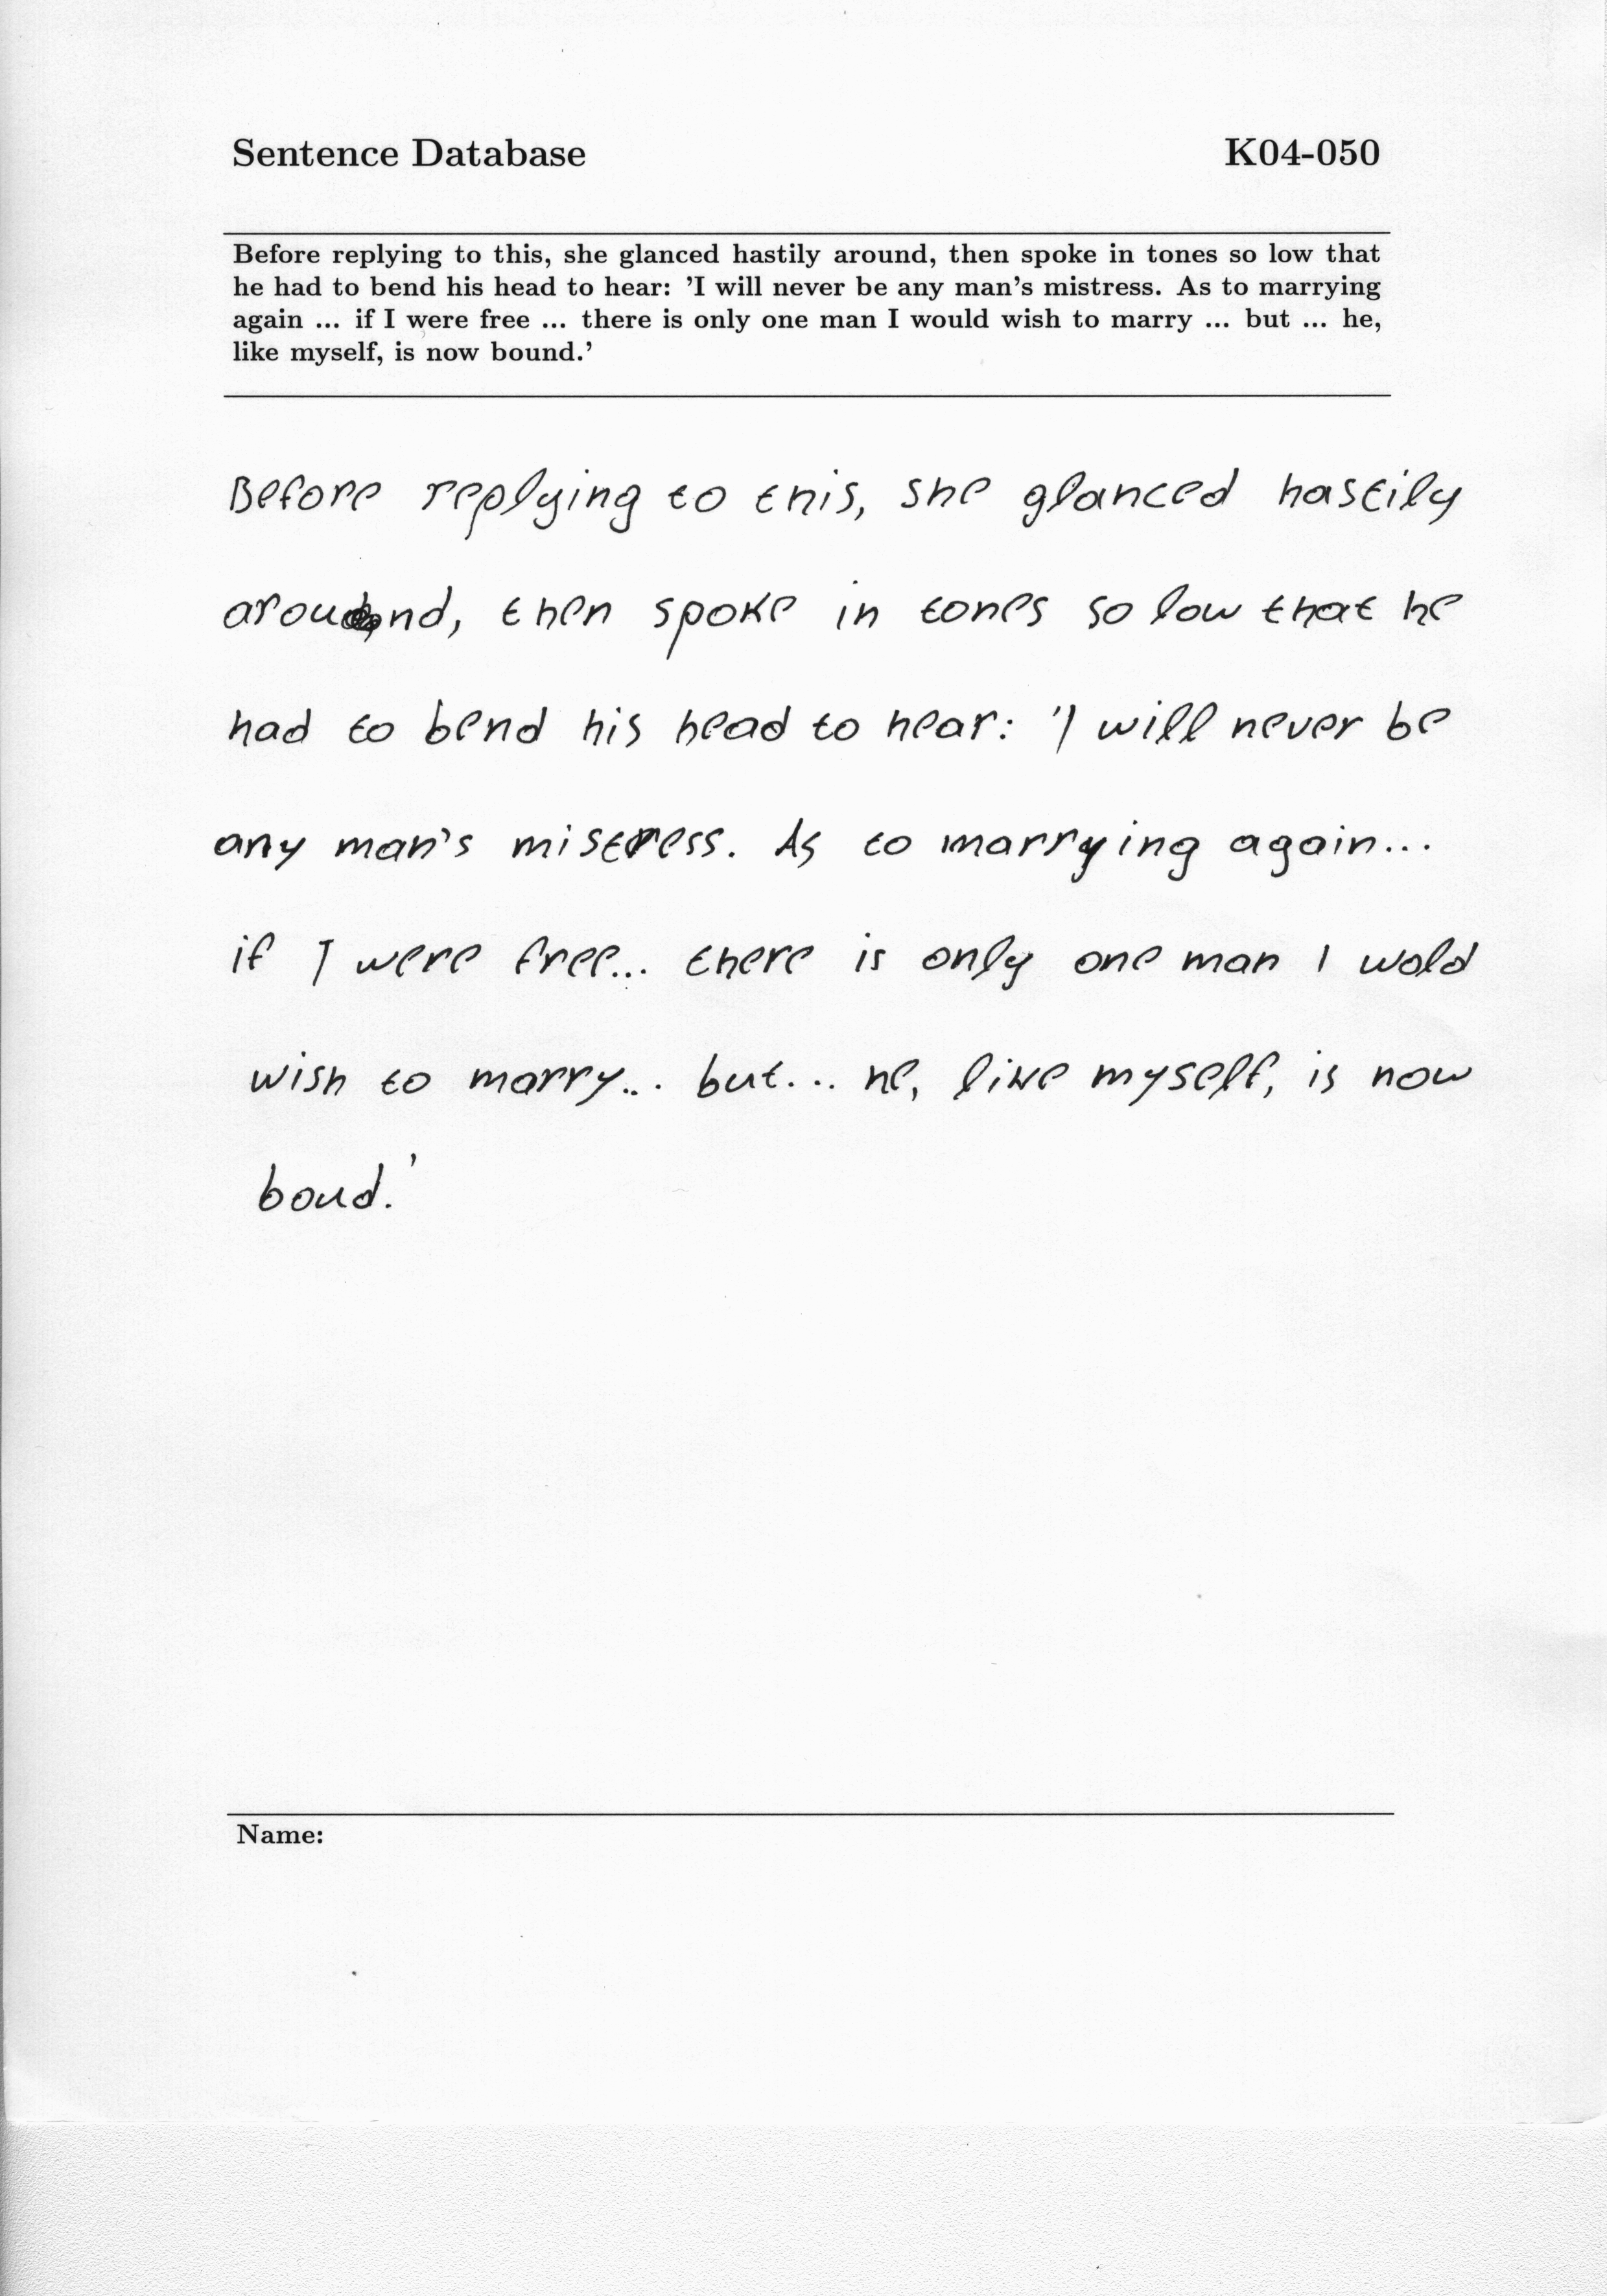 Sentence Database K04-050
Before replying to this, she glanced hastily around, then spoke in tones so low that
he had to bend his head to hear: 'I will never be any man's mistress. As to marrying
again ... if I were free ... there is only one man I would wish to marry ... but ... he,
like myself, is now bound.'
Before replying to this, she glanced hastily
around, then spoke in tones so low that he
had to bend his head to hear: 'I will never be
any man's mistress. As to marrying again...
if I were free... there is only one man I wold
wish to marry... but... he, like myself, is now
boud.'
Name: